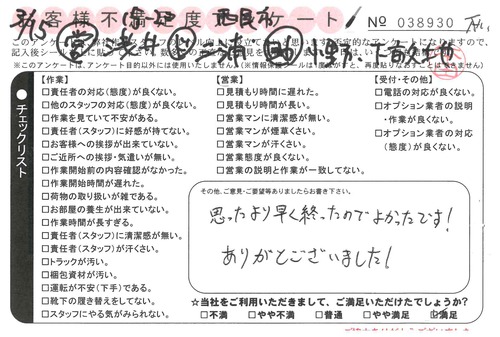 お客様不満足度アンケート
3/15
№ 038930
※このアンケートは、アンケート目的以外には使用いたしません。
チェックリスト
【作業】
□責任者の対応(態度)が良くない。
□他のスタッフの対応(態度)が良くない。
□作業を見ていて不安がある。
□責任者(スタッフ)に好感が持てない。
□お客様への挨拶が出来ていない。
□ご近所への挨拶・気遣いが無い。
□作業開始前の内容確認がなかった。
□作業開始時間が遅れた。
□荷物の取り扱いが雑である。
□お部屋の養生が出来ていない。
□作業時間が長すぎる。
□責任者(スタッフ)に清潔感が無い。
□責任者(スタッフ)が汗くさい。
□トラックが汚い。
□梱包資材が汚い。
□運転が不安(下手)である。
□靴下の履き替えをしてない。
□スタッフにやる気がみられない。
【営業】
□見積もり時間に遅れた。
□見積もり時間が長い。
□営業マンに清潔感が無い。
□営業マンが煙草くさい。
□営業マンが汗くさい。
□営業態度が良くない。
□営業の説明と作業が一致してない。
【受付・その他】
□電話の対応が良くない。
□オプション業者の説明
・作業が良くない。
□オプション業者の対応
(態度)が良くない。
その他、ご意見・ご要望等ありましたらお書き下さい。
思ったより早く終ったのでよかったです!
ありがとございました!
☆当社をご利用いただきまして、ご満足いただけたでしょうか?
□不満 □やや不満 □普通 □やや満足 ☑満足